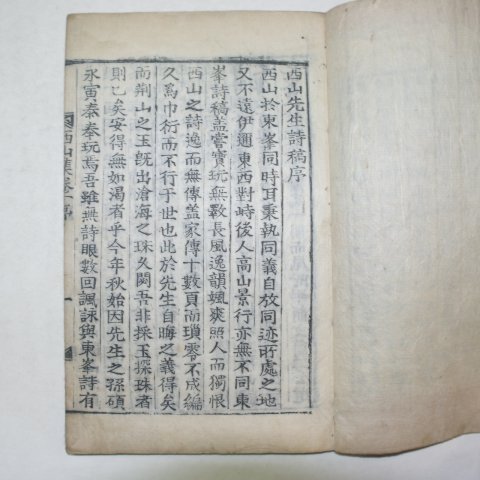 西山先生詩稿序
西山於東峯同時耳秉執同義自放同迹所處之地
又不遠伊邇東西對峙後人高山景行亦無不同東
峯詩稿盖嘗寶玩無斁長風逸韻颯爽照人而獨恨
西山之詩逸而無傳盖家傳十數頁而瑣零不成編
久爲巾衍而不行于世也此於先生自晦之義得矣
而荆山之玉旣出滄海之珠久閟吾非採玉探珠者
則已矣安得無如渴者乎今年秋始因先生之孫碩
永寅泰奉玩焉吾雖無詩眼數回諷詠與東峯詩有
西山集卷一 序
一